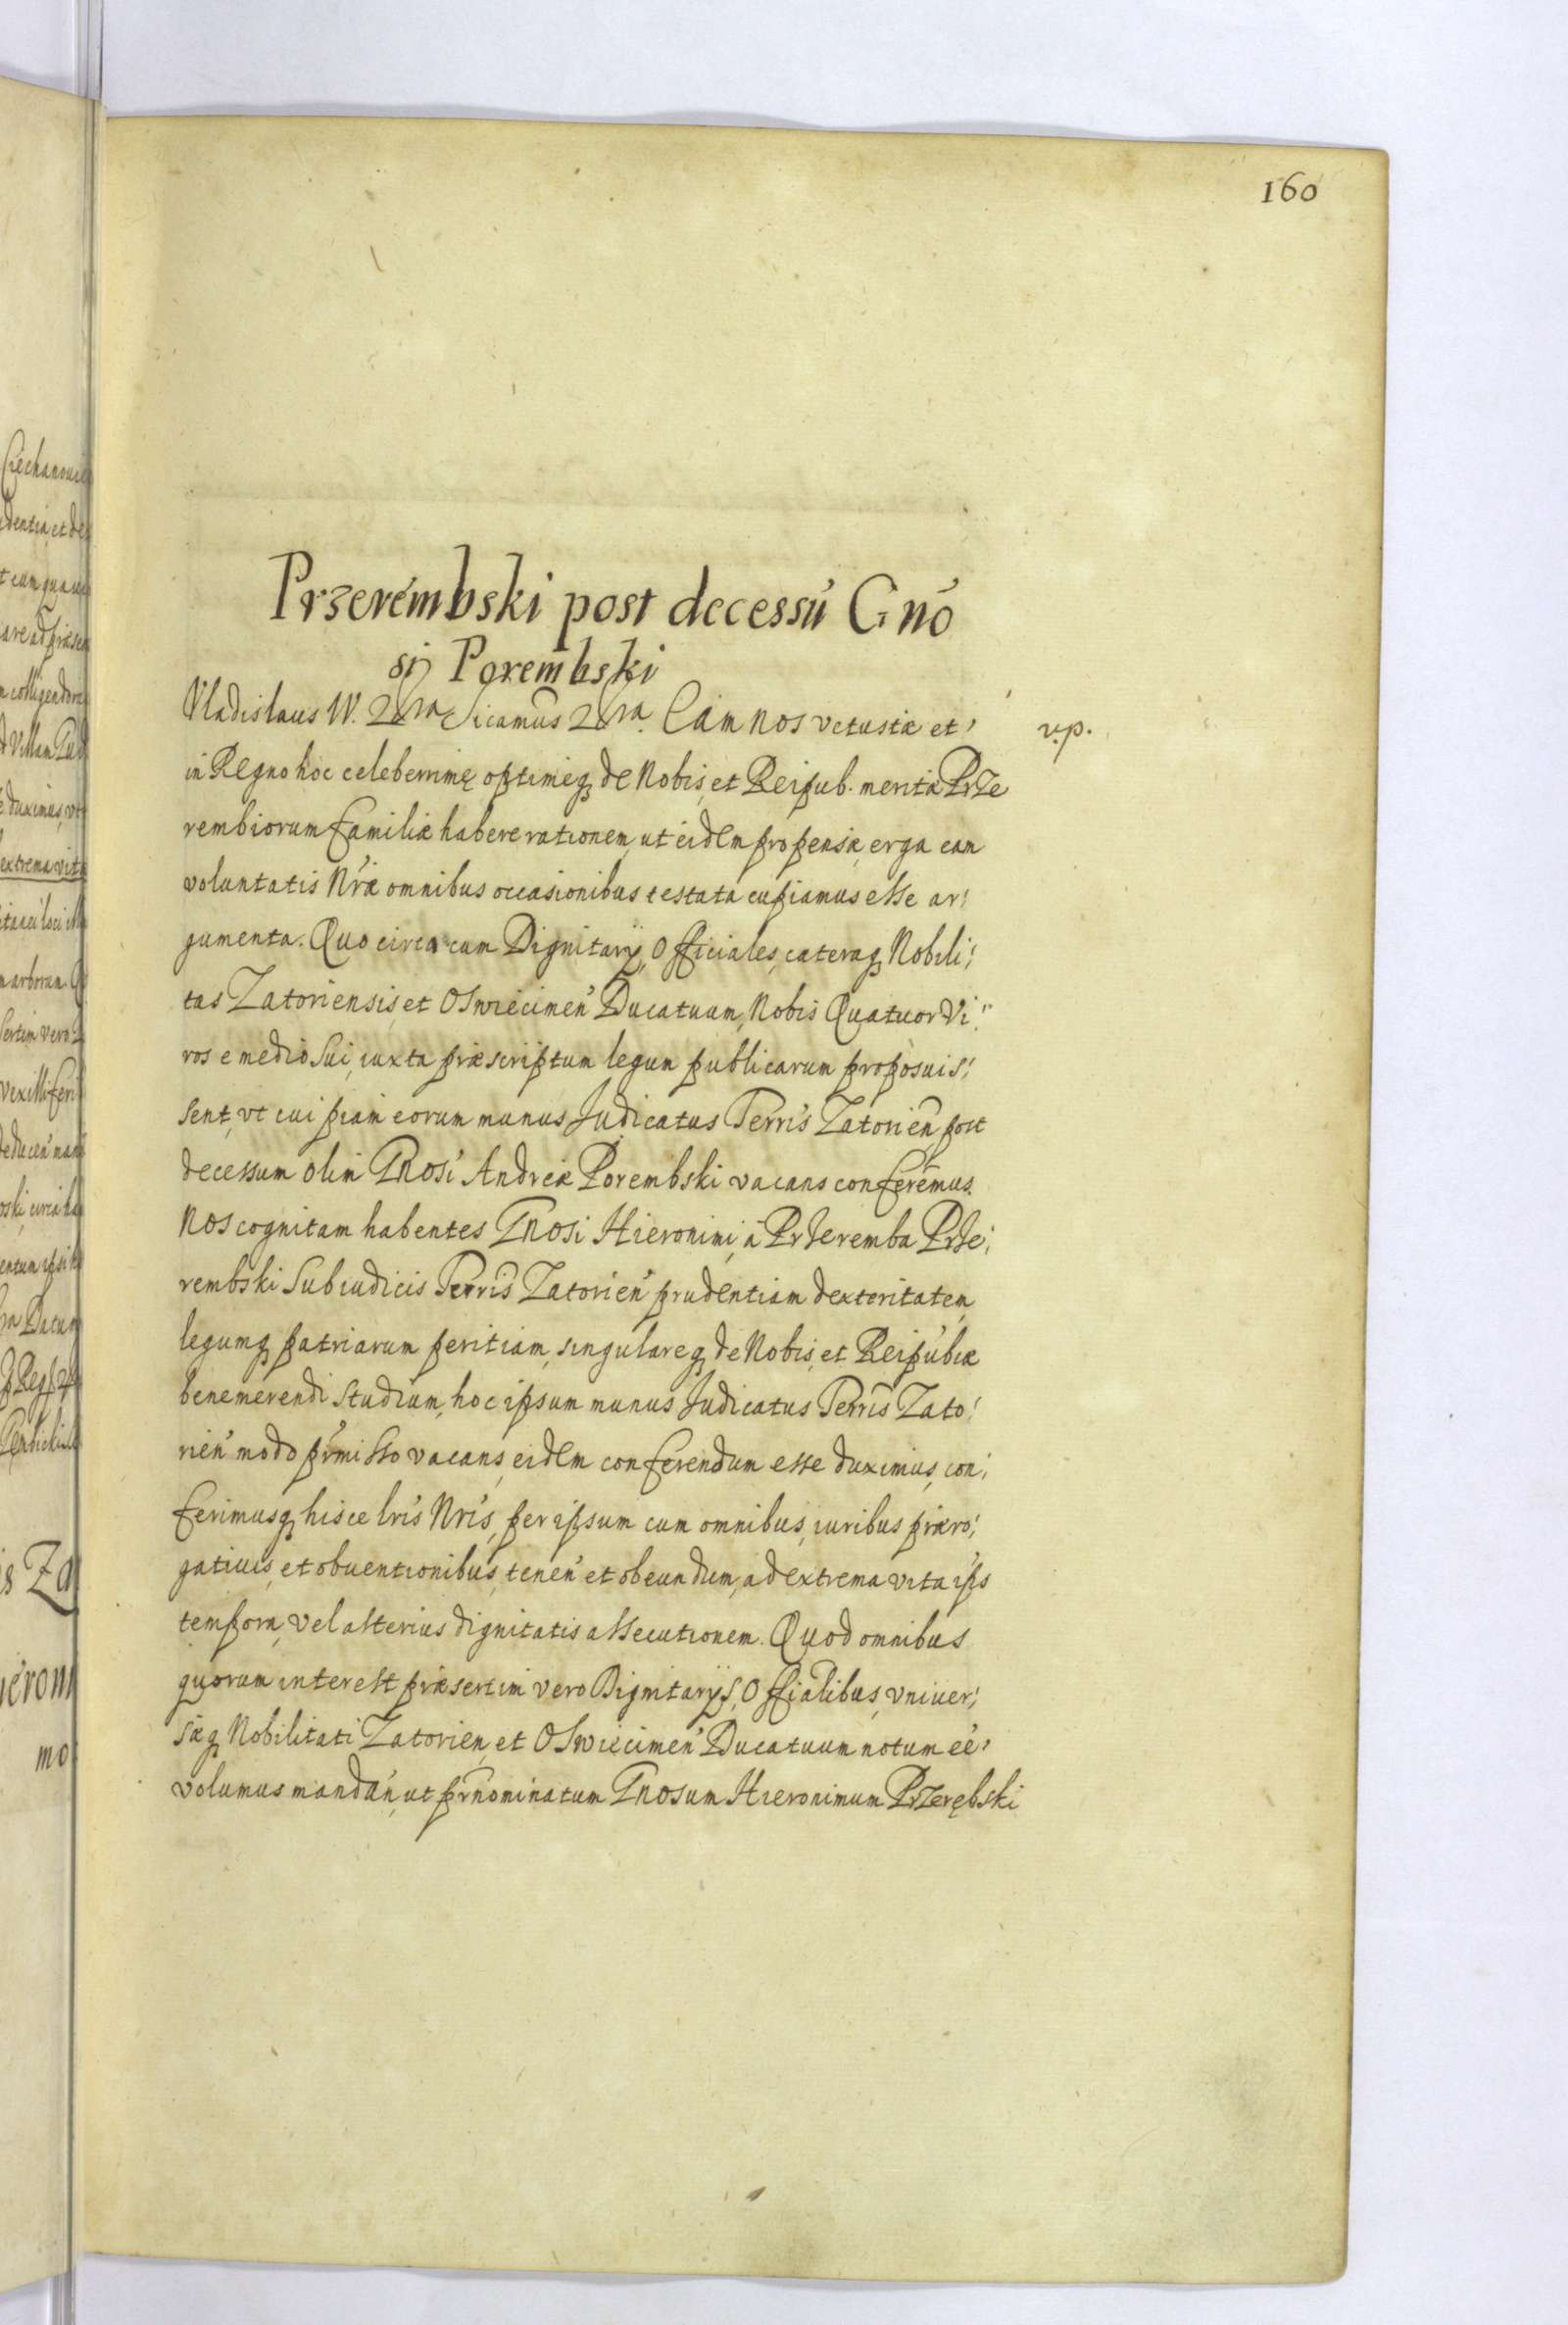 160
Przerémbski post decessú Gnó
si Porembski
Vladislaus IV. &ra Sicamus &ra. Cam nos vetustæ et
v.p.
in Regno hoc celeberrimę optimeq de Nobis, et Reipub. meritæ Prze
rembiorum familiæ habere rationem, ut eidem propensæ erga eam
voluntatis Nr̃æ omnibus occasionibus testata cupiamus esse ar:
gumenta. Quocirca cum Dignitarij, Officiales, cæteraq Nobili:
tas Zatoriensis, et Oswiecimen̄ Ducatuum, Nobis Quatuor Vi:
ros e medio sui, iuxta præscriptum legum publicarum proposuis:
sent, vt cuipiam eorum munus Judicatus Terrīs Zatorien̄ post
decessum olim Gnosi Andreæ Porembski vacans conferēmus.
Nos cognitam habentes Gnosi Hieronimi à Przeremba Prze:
rembski Subiudicis Terrīs Zatorien̄ prudentiam dexteritatem,
legumq patriarum peritiam, singulareq de Nobis, et Reipublcæ
benemerendi studium, hoc ipsum munus Judicatus Terrīs Zato:
rien̄ modo prmisso vacans, eidem conferendum esse duximus, con:
ferimusq hisce lrīs Nrīs, per ipsum cum omnibus, iuribus præro:
gatiuis, et obuentionibus, tenen̄ et obeundum, ad extrema vitæ ipīs
tempora, vel alterius dignitatis assecutionem. Quod omnibus
quorum interest præsertim vero Dignitarijs, Offialibus, vniuer:
sæq Nobilitati Zatorien, et Oswiecimen̄ Ducatuum notum eē
volumus mandan̄, ut prnominatum Gnosum Hieronimum Przerębski